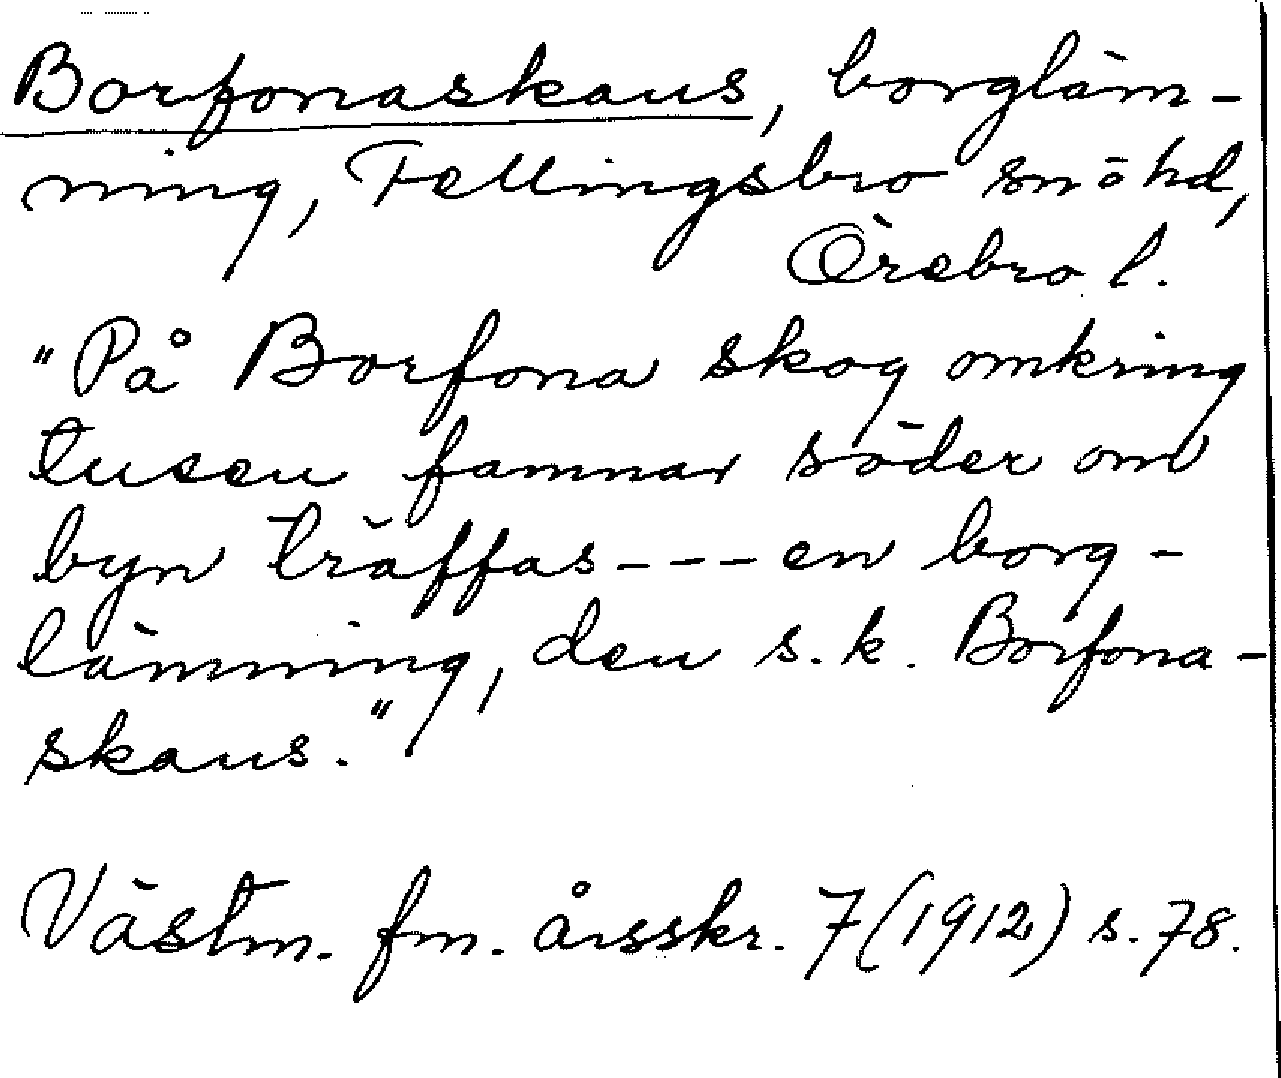 Borfonaskans, borgläm-
ning, Fellingsbro sn ö hd,
Örebro l.
"På Borfona skog omkring
tusen famnar söder om
byn träffas --- en borg-
lämning, den s.k. Borfona-
skans."
Västm. fm. årsskr. 7 (1912) s. 78.